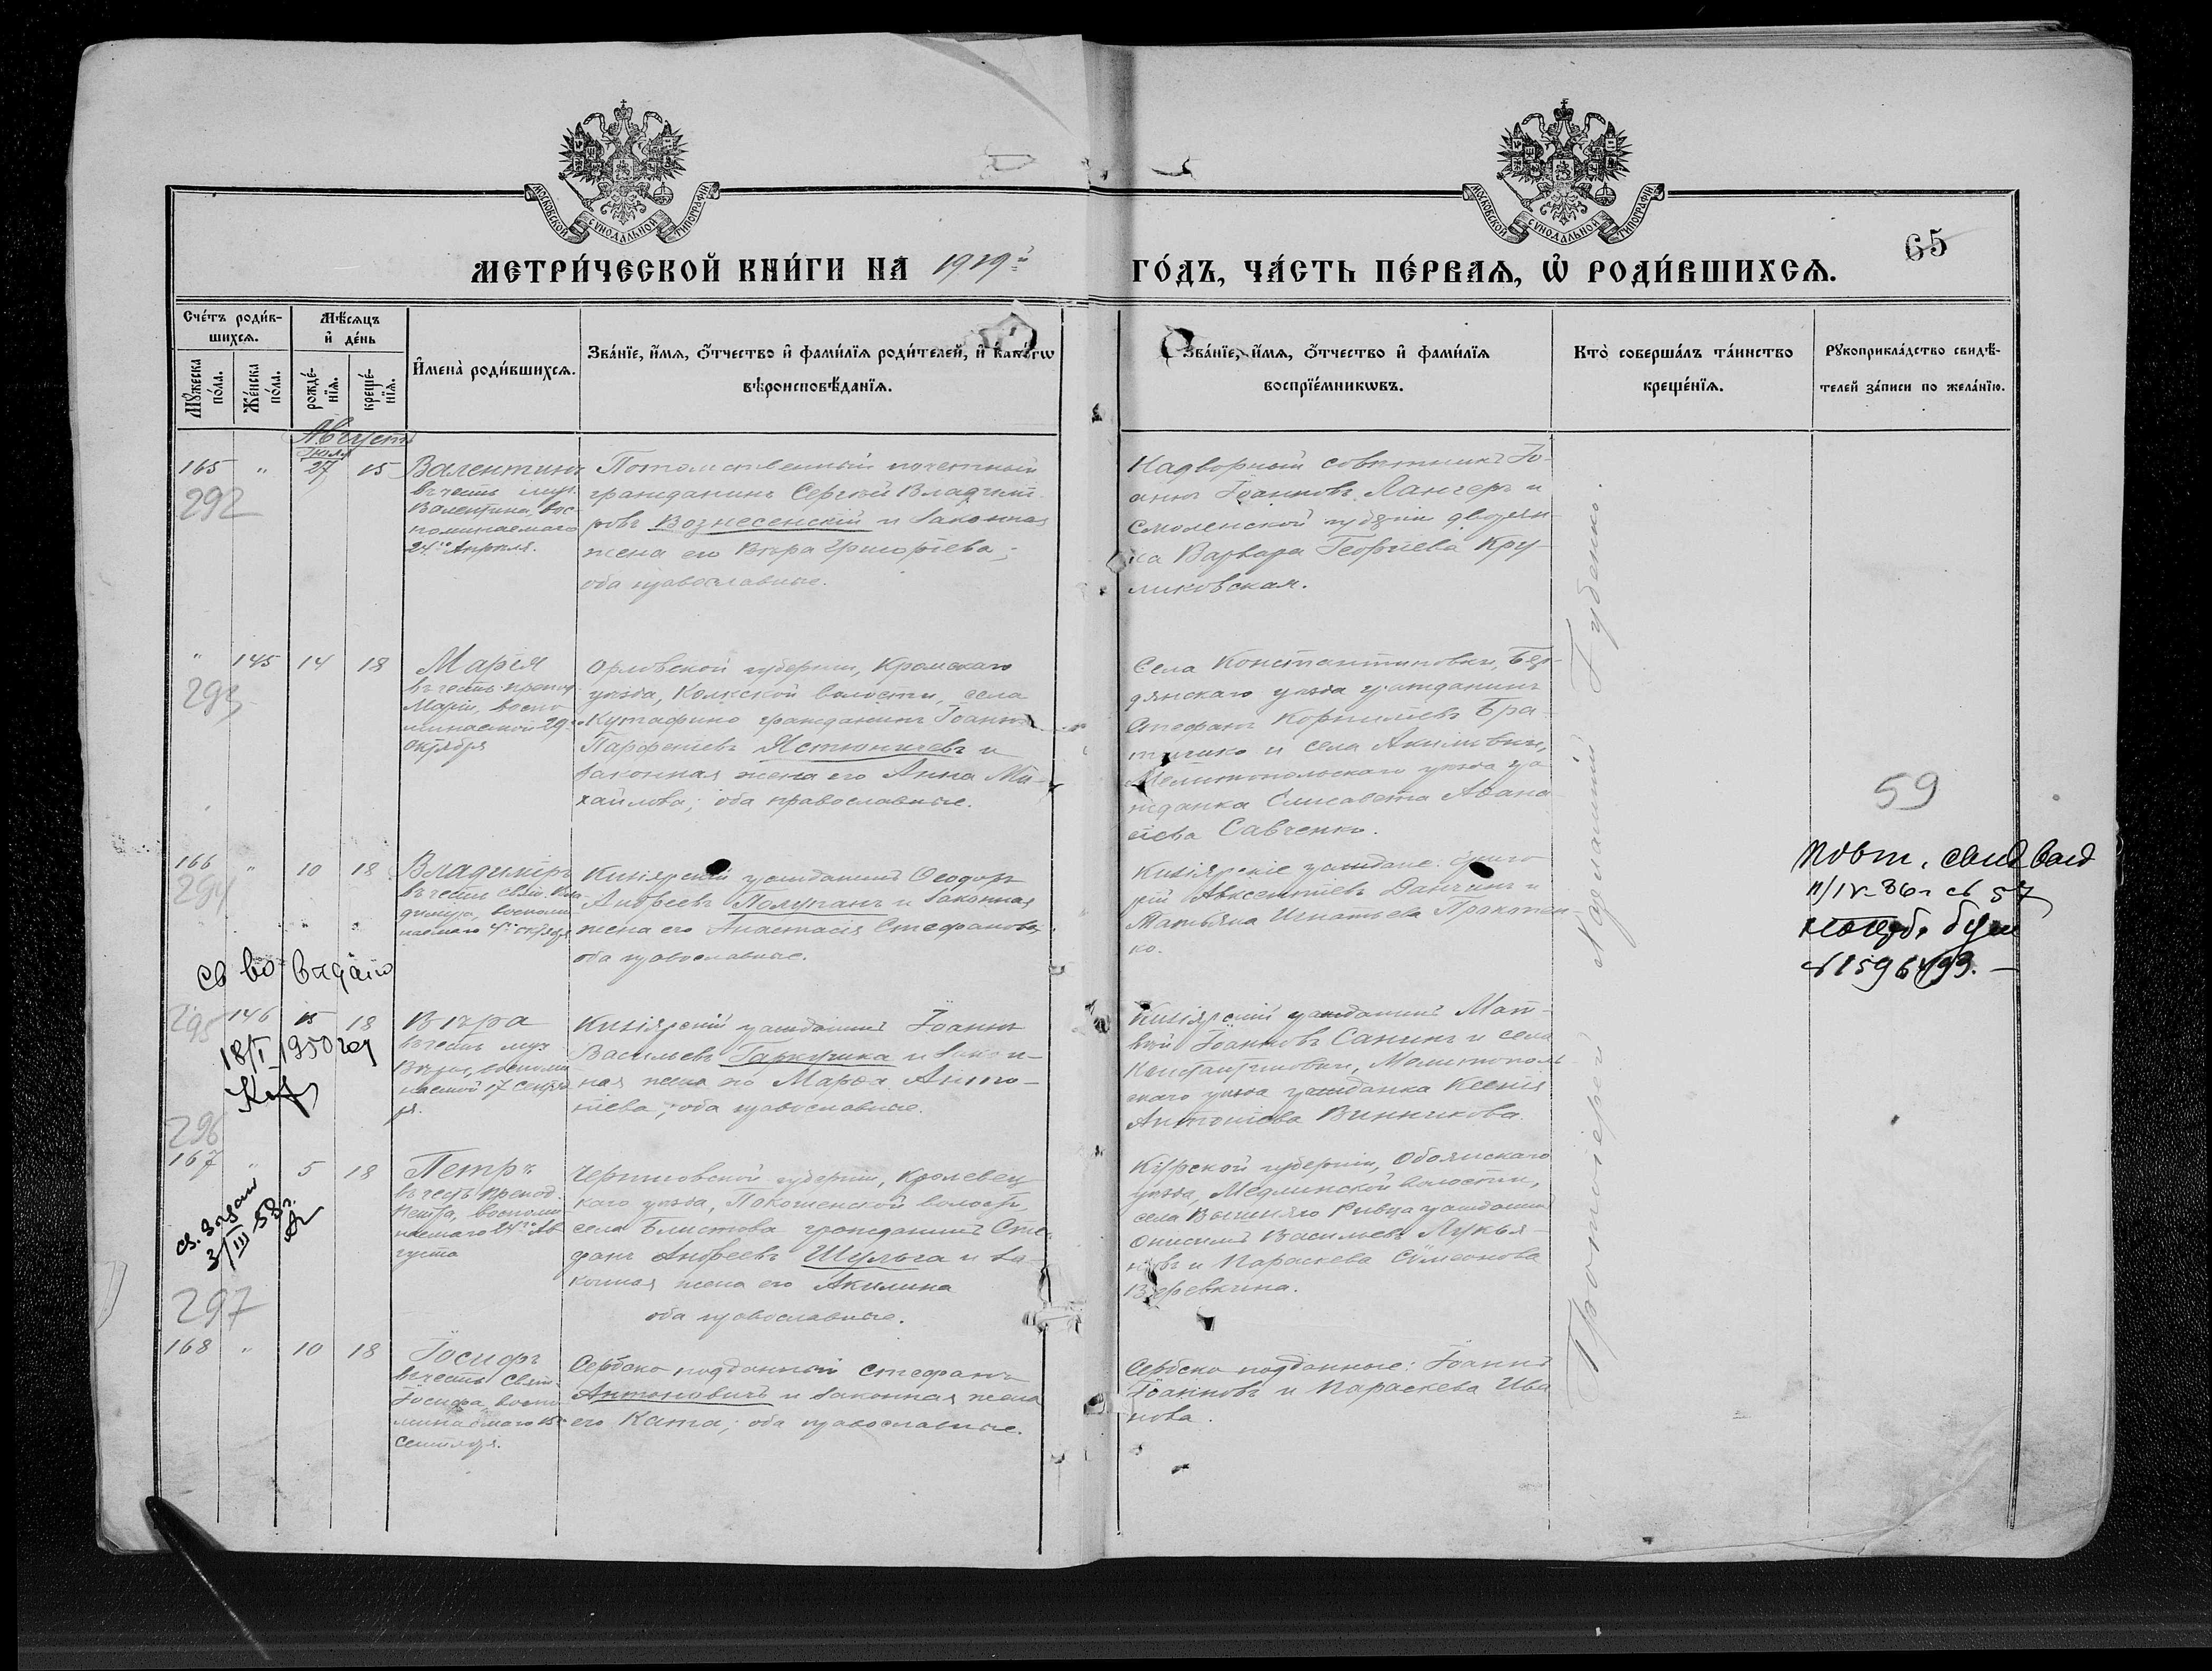 МОСКОВСКОЙ СѴНОДАЛЬНОЙ ТИПОГРАФІИ
МОСКОВСКОЙ СѴНОДАЛЬНОЙ ТИПОГРАФІИ
65
МЕТРИ́ЧЕСКОЙ КНИ́ГИ НА 1919й
ГО́ДЪ, ЧА́СТЬ ПЕ́РВАЯ, Ѿ РОДИ́ВШИХСЯ.
Сче́тъ роди́в-
шихся.
Мѣсяцъ
и де́нь
Мꙋ́жеска по́ла.
Же́нска по́ла.
рожде́-нїя.
креще́-нїя.
Имена̀ роди́вшихся.
Зва́нїе, и́мя, о́тчество и фами́лїя роди́телей, и како́гѡ
вѣроисповѣ́данїя.
Зва́нїе, и́мя, о́тчество и фами́лїя
воспрїе́мникѡвъ.
Кто̀ соверша́лъ та́инство
креще́нїя.
Рꙋкоприкла́дство свидѣ́-
телей за́писи по жела́нїю.
Августъ
Іюля
165 " 27 15
292
Валентинъ
въ честь муч.
Валентина, вос-
поминаемаго
24го Апрѣля.
Потомственный почетный
гражданинъ Сергѣй Владимі-
ровъ Вознесенскій и законная
жена его Вѣра Григоріева;
оба православные.
Надворный совѣтникъ Іо-
аннъ Іоанновъ Лангеръ и
Смоленской губерніи дворян-
ка Варвара Георгіева Кру-
ликовская.
" 145 14 18
293
Марія
въ честь препод.
Маріи, воспо-
минаемой 29го
Октября
Орловской губерніи, Кромскаго
уѣзда, Колкской волости, села
Кутафино гражданинъ Іоаннъ
Парфеніевъ
законная жена его Анна Ми-
хайлова; оба православные.
Села Константиновки, Бер-
дянскаго уѣзда гражданинъ
Стефанъ Корниліевъ Бра-
и села Акимовки,
Мелитопольскаго уѣзда гра-
жданка Елисавета Аѳана-
сіева Савченко.
166 " 10 18
294
Владиміръ
въ честь свято Вла-
диміра, воспоми-
наемаго 4го октября
Кизіярскій гражданинъ Ѳеодоръ
Андреевъ Полупанъ и законная
жена его Анастасія Стефанова;
оба православные.
Кизіярскіе граждане: Григо-
рій Авксентіевъ Данчинъ и
Татьяна Игнатьева Прокопен-
ко.
св во выдано
295 146 15 18
18/I 1950 год
Вѣра
въ честь муч.
Вѣры, воспоми-
наемой 17 Сентяб-
ря.
Кизіярскій гражданинъ Іоаннъ
Васильевъ Гаркушка и закон-
ная жена его Марѳа Анто-
ніева; оба православные.
Кизіярскій гражданинъ Мат-
вѣй Іоанновъ Санинъ и села
Константиновки, Мелитополь-
скаго уѣзда гражданка Ксенія
Антоніева Винникова.
296
167 " 5 18
св. Выдан
3/III-53г.
Петръ
въ честь препод.
Петра, воспоми-
наемаго 24го Ав-
густа
Черниговской губерніи, Кролевец-
каго уѣзда, Покошенской волости,
села Блистова гражданинъ Сте-
фанъ Андреевъ Шульга и за-
конная жена его Акилина
оба православные.
Курской губерніи, Обоянскаго
уѣзда, Медвинской волости,
села гражданинъ
Онисимъ Васильевъ Лукья-
новъ и Параскева Сѵмеонова
Веревкина.
297
168 " 10 18
Іосифъ
въ честь свят.
Іосифа, воспо-
минаемаго 15го
Сентября.
Сербско-подданный Стефанъ
Антоновичъ и законная жена
его Ката; оба православные.
Сербско подданные: Іоаннъ
Іоанновъ и Параскева Ива-
нова.
Протоіерей Губенко.
59
Повт.
11/IV-86г св 57
№ 1596493. —